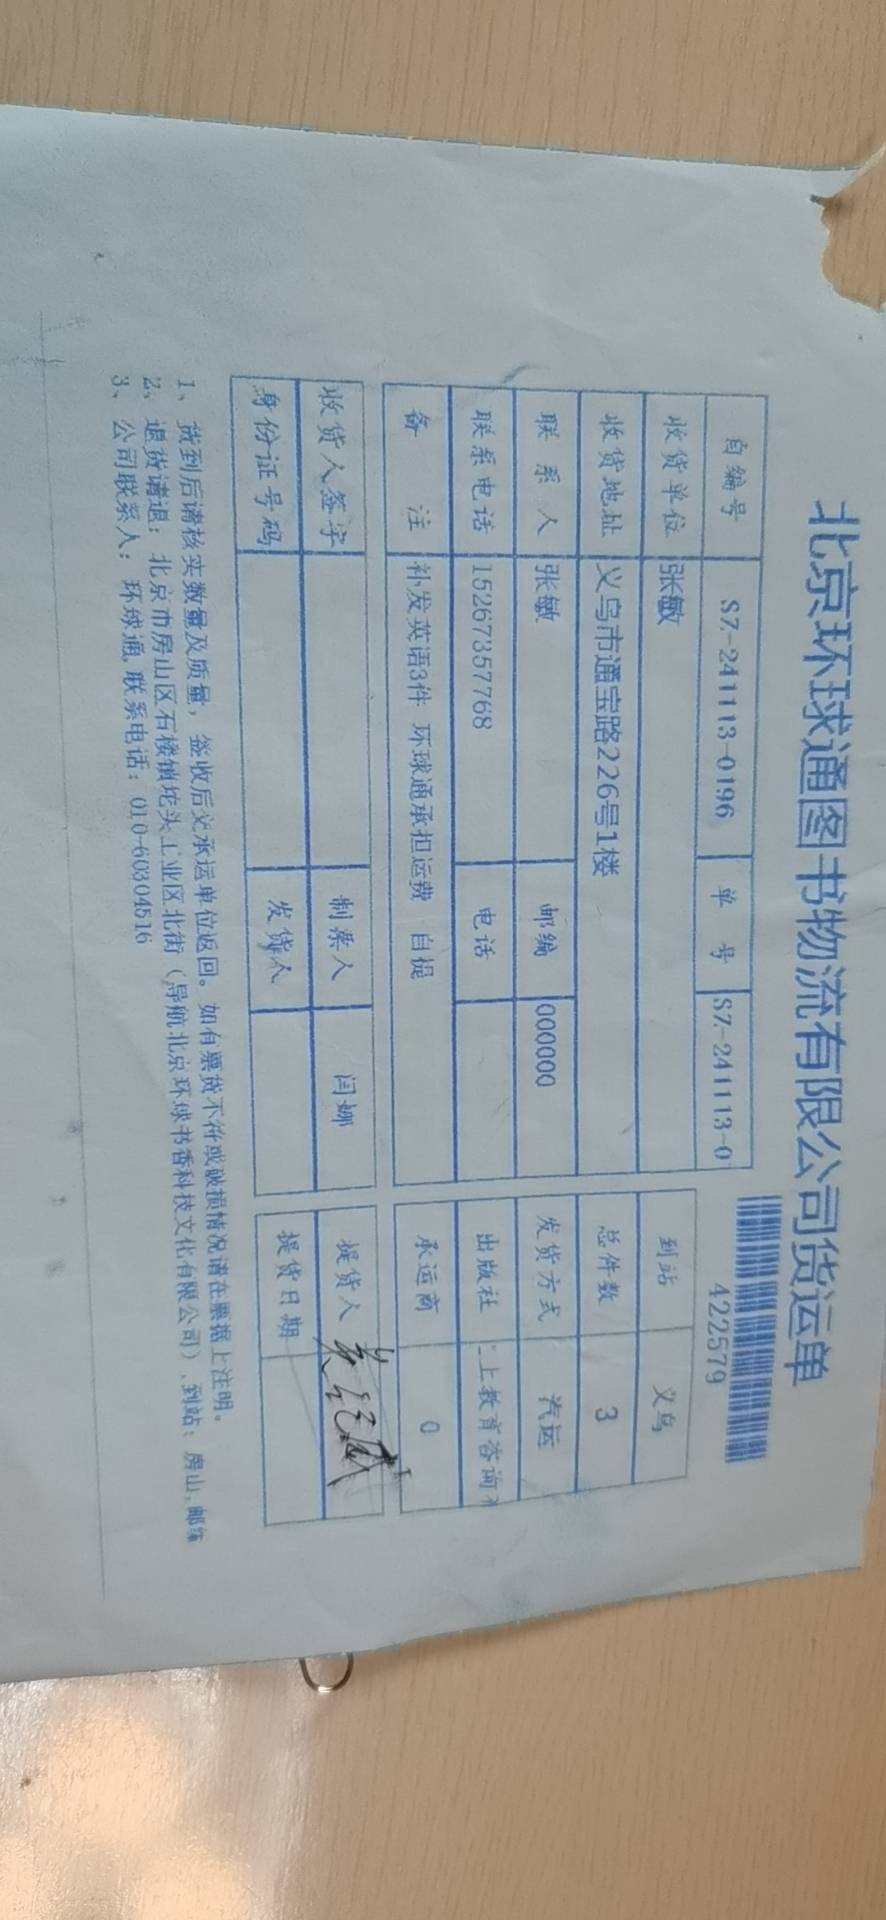 北京环球通图书物流有限公司货运单
422579
自编号 SZ-241113-0196 单 号 SZ-241113-0
收货单位 张敏 到站 义乌
收货地址 义乌市通宝路226号1楼 总件数 3
联 系 人 张敏 邮编 000000 发货方式 汽运
联系电话 15267357768 电话 出版社 上教育咨询
备 注 补发英语3件 环球通承担运费 自提 承运商 0
收货人签字 制票人 闫娜 提货人
身份证号码 发货人 提货日期
1、货到后请核实数量及质量，签收后交承运单位返回。如有票货不符或破损情况请在票据上注明。
2、退货请退：北京市房山区石楼镇坨头工业区北街（导航北京环球书香科技文化有限公司）、到站：房山、邮编
3、公司联系人：环球通,联系电话：010-60304516